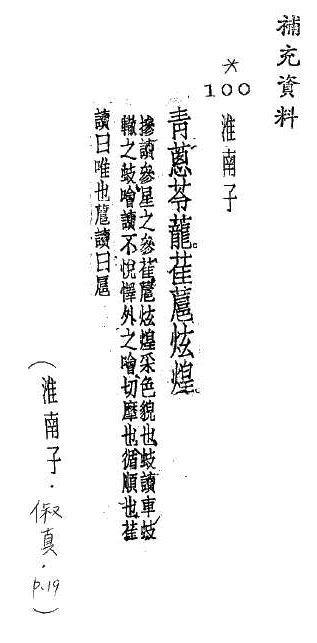 補充資料
*
100
淮南子
青蔥苓蘢。萑蔰炫煌。
摻讀參星之參萑蔰炫煌采色貌也蚑讀車蚑
轍之蚑噲讀不悅懌外之噲切摩也循順也萑
讀曰唯也蔰讀曰扈
(淮南子·俶真·p.19)